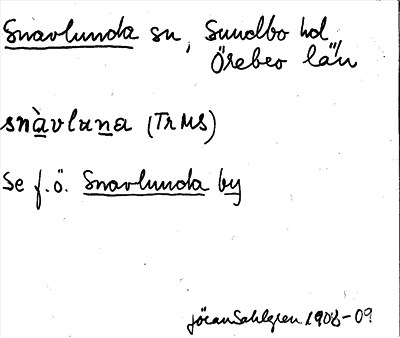 Snavlunda sn, Sundbo hd,
Örebro län
snàvluna (TrMS)
Se f.ö. Snavlunda by
Jöran Sahlgren 1908-09